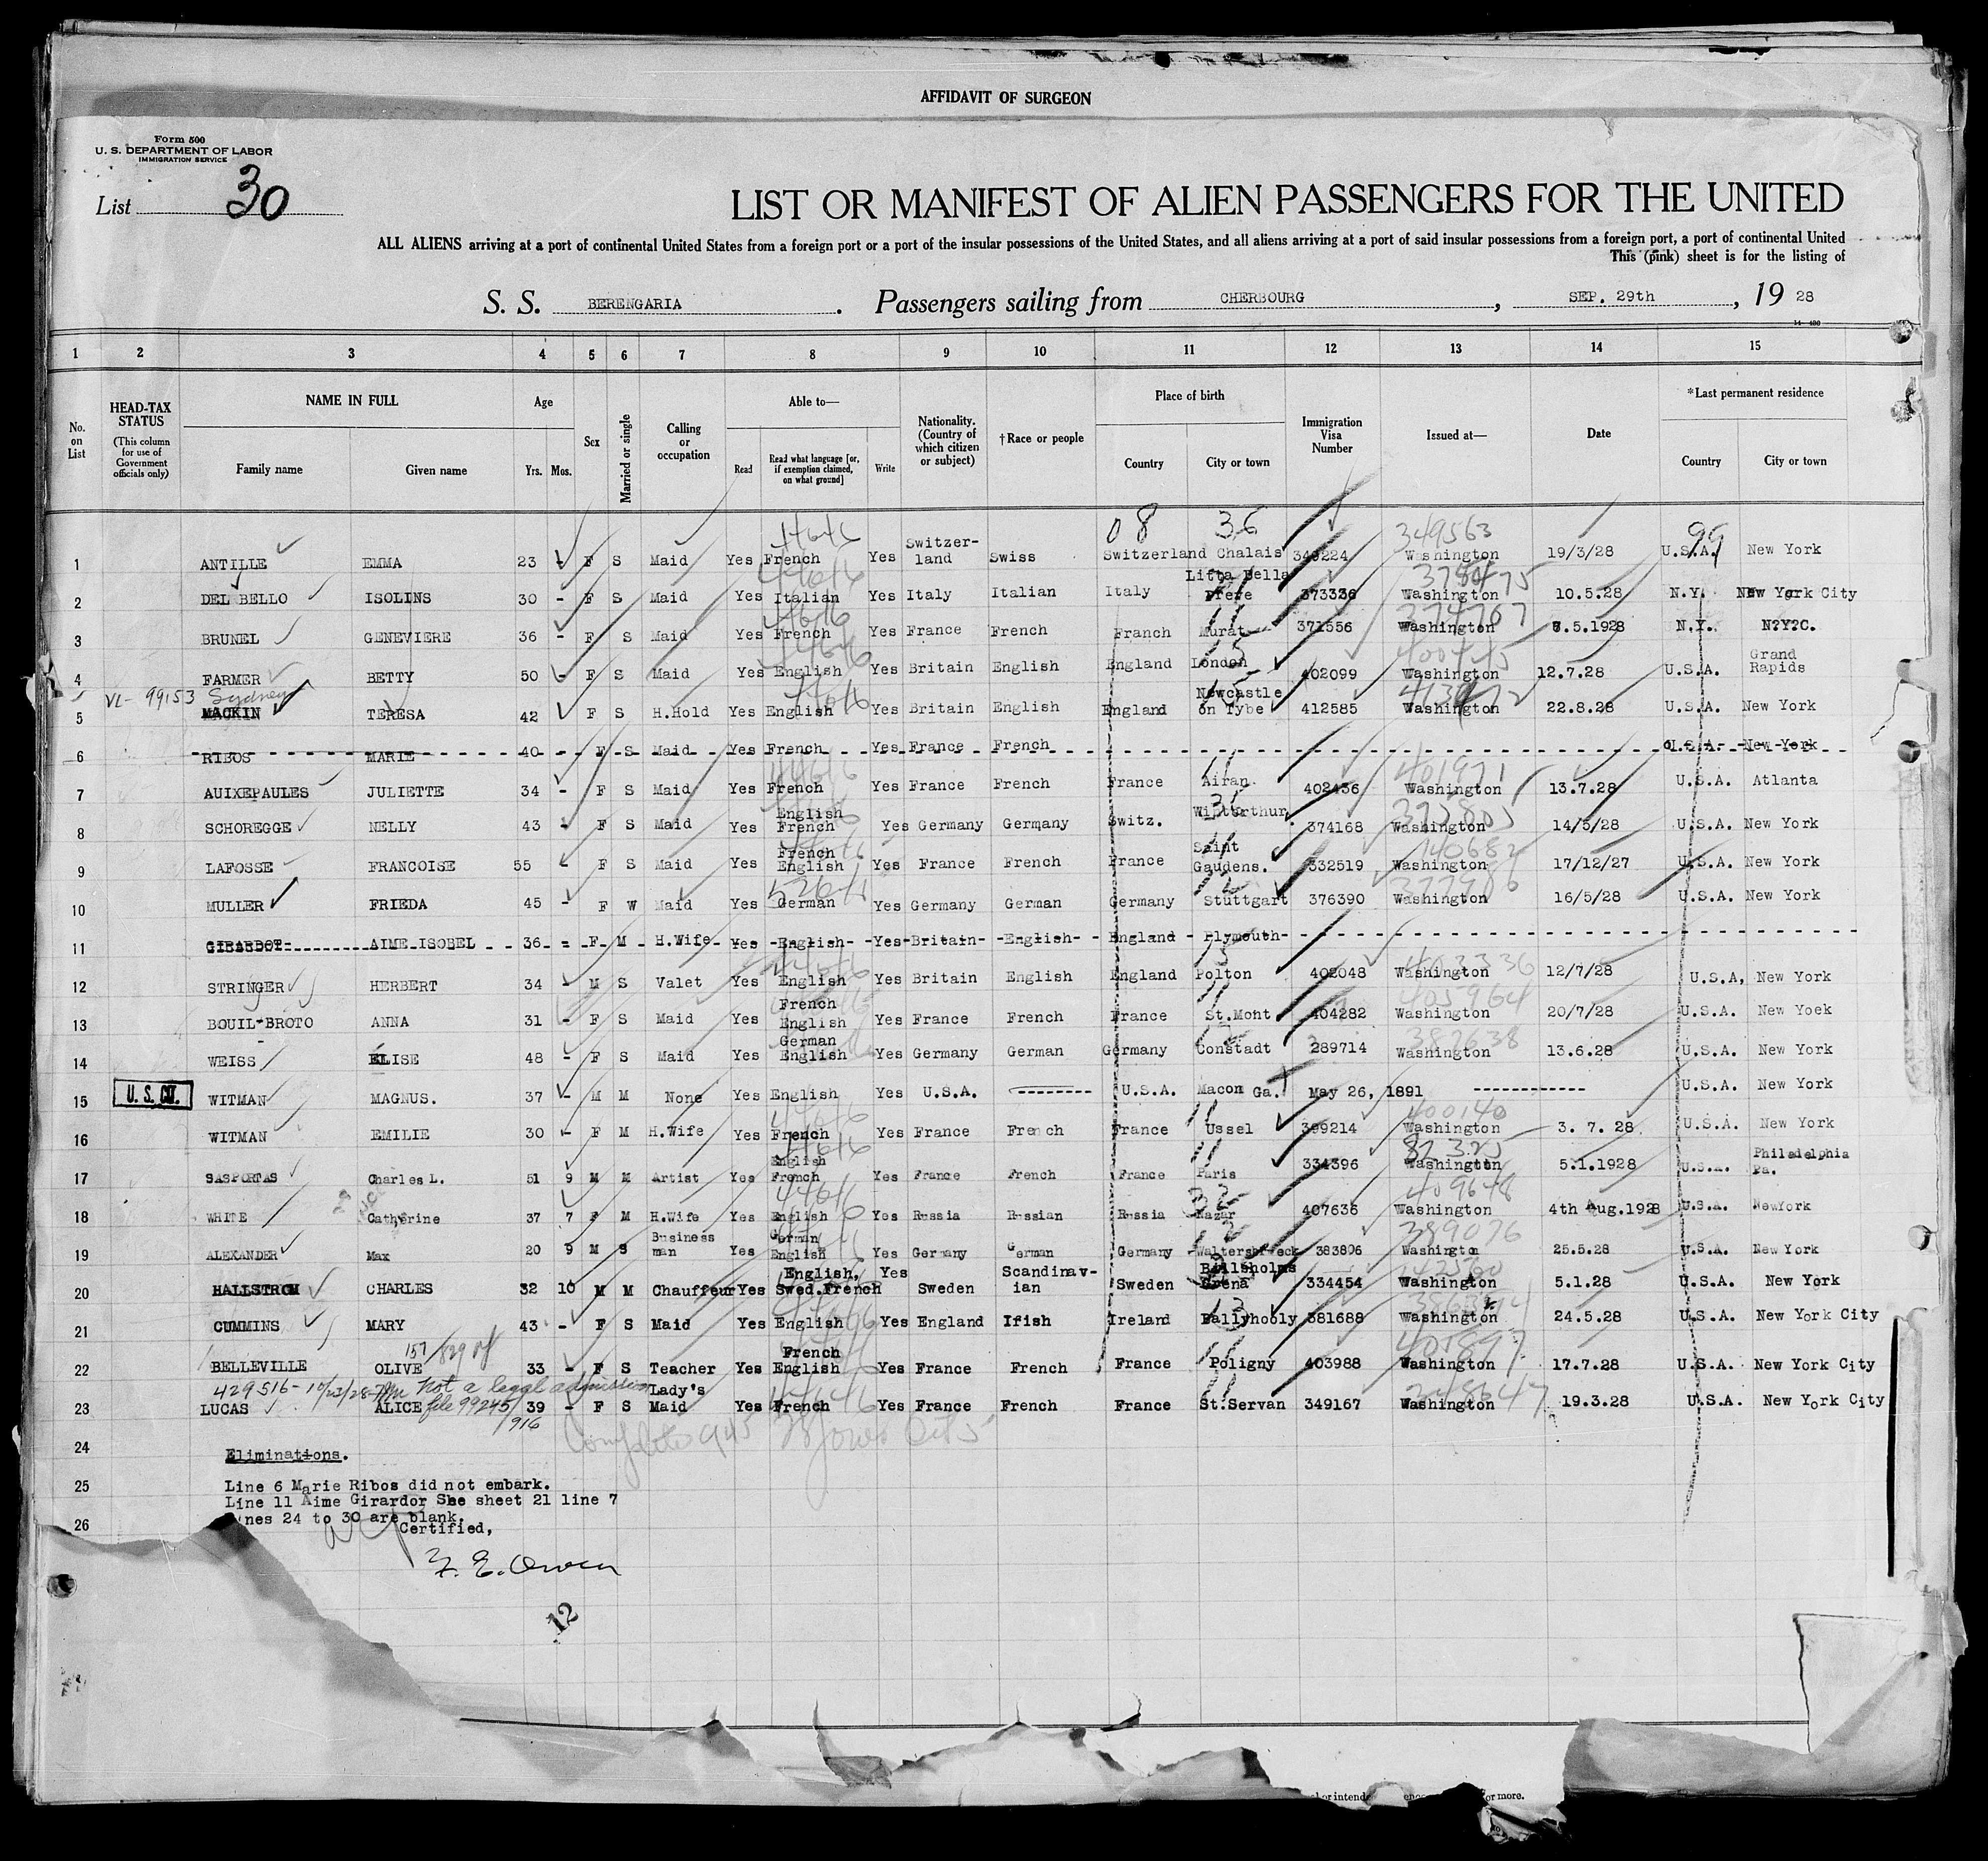 AFFIDAVIT OF SURGEON
Form 500
U. S. DEPARTMENT OF LABOR
IMMIGRATION SERVICE
List 30
LIST OR MANIFEST OF ALIEN PASSENGERS FOR THE UNITED
ALL ALIENS arriving at a port of continental United States from a foreign port or a port of the insular possessions of the United States, and all aliens arriving at a port of said insular possessions from a foreign port, a port of continental United
This (pink) sheet is for the listing of
S. S. BERENGARIA. Passengers sailing from CHERBOURG, SEP. 29th, 19 28
14—430
1 2 3 4 5 6 7 8 9 10 11 12 13 14 15
No. on List
HEAD-TAX STATUS
(This column for use of Government officials only)
NAME IN FULL
Family name
Given name
Age
Yrs.
Mos.
Sex
Married or single
Calling or occupation
Able to—
Read
Read what language [or, if exemption claimed, on what ground]
Write
Nationality. (Country of which citizen or subject)
†Race or people
Place of birth
Country
City or town
Immigration Visa Number
Issued at—
Date
*Last permanent residence
Country
City or town
08 36 349563 99
1 ANTILLE EMMA 23 - F S Maid Yes French Yes Switzer-land Swiss Switzerland Chalais 349224 Washington 19/3/28 U.S.A. New York
2 DEL BELLO ISOLINS 30 - F S Maid Yes Italian Yes Italy Italian Italy 373336 Washington 10.5.28 N.Y. New York City
3 BRUNEL GENEVIERE 36 - F S Maid Yes French Yes France French Franch Murat 371556 Washington 8.5.1928 N.Y. N?Y?C.
4 FARMER BETTY 50 - F S Maid Yes English Yes Britain English England London 402099 Washington 12.7.28 U.S.A. Grand Rapids
VL- 99153 Sydney
5 MACKIN TERESA 42 F S H.Hold Yes English Yes Britain English England Newcastle on Tybe 412585 Washington 22.8.28 U.S.A. New York
6 RIBOS MARIE 40 - F S Maid Yes French Yes France French U.S.A. New York
7 AUIXEPAULES JULIETTE 34 - F S Maid Yes French Yes France French France Airan 402436 Washington 13.7.28 U.S.A. Atlanta
8 SCHOREGGE NELLY 43 - F S Maid Yes English French Yes Germany Germany Switz. Winterthur 374168 Washington 14/5/28 U.S.A. New York
9 LAFOSSE FRANCOISE 55 - F S Maid Yes French English Yes France French France Saint Gaudens. 332519 Washington 17/12/27 U.S.A. New York
10 MULLER FRIEDA 45 - F W Maid Yes German Yes Germany German Germany Stuttgart 376390 Washington 16/5/28 U.S.A. New York
11 GIRARDOT AIME ISOBEL 36 - F M H.Wife Yes English Yes Britain English England Plymouth
12 STRINGER HERBERT 34 - M S Valet Yes English Yes Britain English England Polton 402048 Washington 12/7/28 U.S.A, New York
13 BOUIL-BROTO ANNA 31 - F S Maid Yes French English Yes France French France St.Mont 404282 Washington 20/7/28 U.S.A. New Yoek
14 WEISS ELISE 48 - F S Maid Yes German English Yes Germany German Germany Constadt 289714 Washington 13.6.28 U.S.A. New York
15 U. S. CIT. WITMAN MAGNUS. 37 - M M None Yes English Yes U.S.A. -------- U.S.A. Macon Ga. May 26, 1891 ------------ U.S.A. New York
16 WITMAN EMILIE 30 - F M H.Wife Yes French Yes France French France Ussel 399214 Washington 3. 7. 28 U.S.A. New York
17 SASPORTAS Charles L. 51 9 M M Artist Yes English French Yes France French France Paris 334396 Washington 5.1.1928 U.S.A. Philadelphia Pa.
18 WHITE Catherine 37 7 F M H.Wife Yes English Yes Russia Russian Russia Nazar 407636 Washington 4th Aug.1928 U.S.A. NewYork
19 ALEXANDER Max 20 9 M S Business man Yes German English Yes Germany German Germany 383806 Washington 25.5.28 U.S.A. New York
20 HALLSTROM CHARLES 32 10 M M Chauffeur Yes English, Swed.French Yes Sweden Scandinav-ian Sweden 334454 Washington 5.1.28 U.S.A. New York
21 CUMMINS MARY 43 - F S Maid Yes English Yes England Ifish Ireland Ballyhooly 381688 Washington 24.5.28 U.S.A. New York City
22 BELLEVILLE OLIVE 33 - F S Teacher Yes French English Yes France French France Poligny 403988 Washington 17.7.28 U.S.A. New York City
429516 - 10/23/28 Not a legal admission file 99245/916
23 LUCAS ALICE 39 - F S Lady's Maid Yes French Yes France French France St.Servan 349167 Washington 19.3.28 U.S.A. New York City
24
Eliminations.
25 Line 6 Marie Ribos did not embark.
Line 11 Aime Girardor See sheet 21 line 7
26 Lines 24 to 30 are blank.
Certified,
F. E. Owen
12
or more.